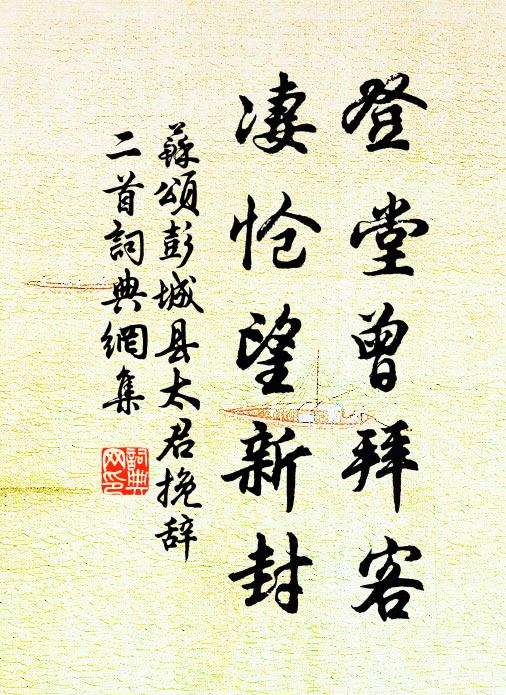 登堂曾拜客
凄怆望新封
蘇頌彭城县太君挽辞
二首詞典網集
詞典
网印